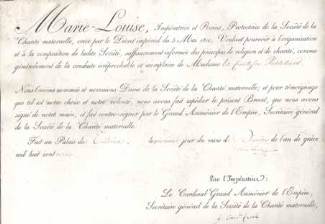 Marie-Louise, Impératrice et Reine, Protectrice de la Société de la
Charité maternelle, créée par le Décret impérial du 5 Mai 1810, Voulant pourvoir à l'organisation
et à la composition de ladite Société, suffisamment informée des principes de religion et de charité, comme
généralement de la conduite irréprochable et exemplaire de Madame la
Nous l'avons nommée et nommons Dame de la Société de la Charité maternelle; et pour témoignage
que tel est notre choix et notre volonté, nous avons fait expédier le présent Brevet, que nous avons
signé de notre main, et fait contre-signer par le Grand Aumônier de l'Empire, Secrétaire général
de la Société de la Charité maternelle.
Fait au Palais des jour du mois de de l'an de grâce
mil huit cent
Par l'Impératrice:
Le Cardinal Grand Aumônier de l'Empire,
Secrétaire général de la Société de la Charité maternelle,